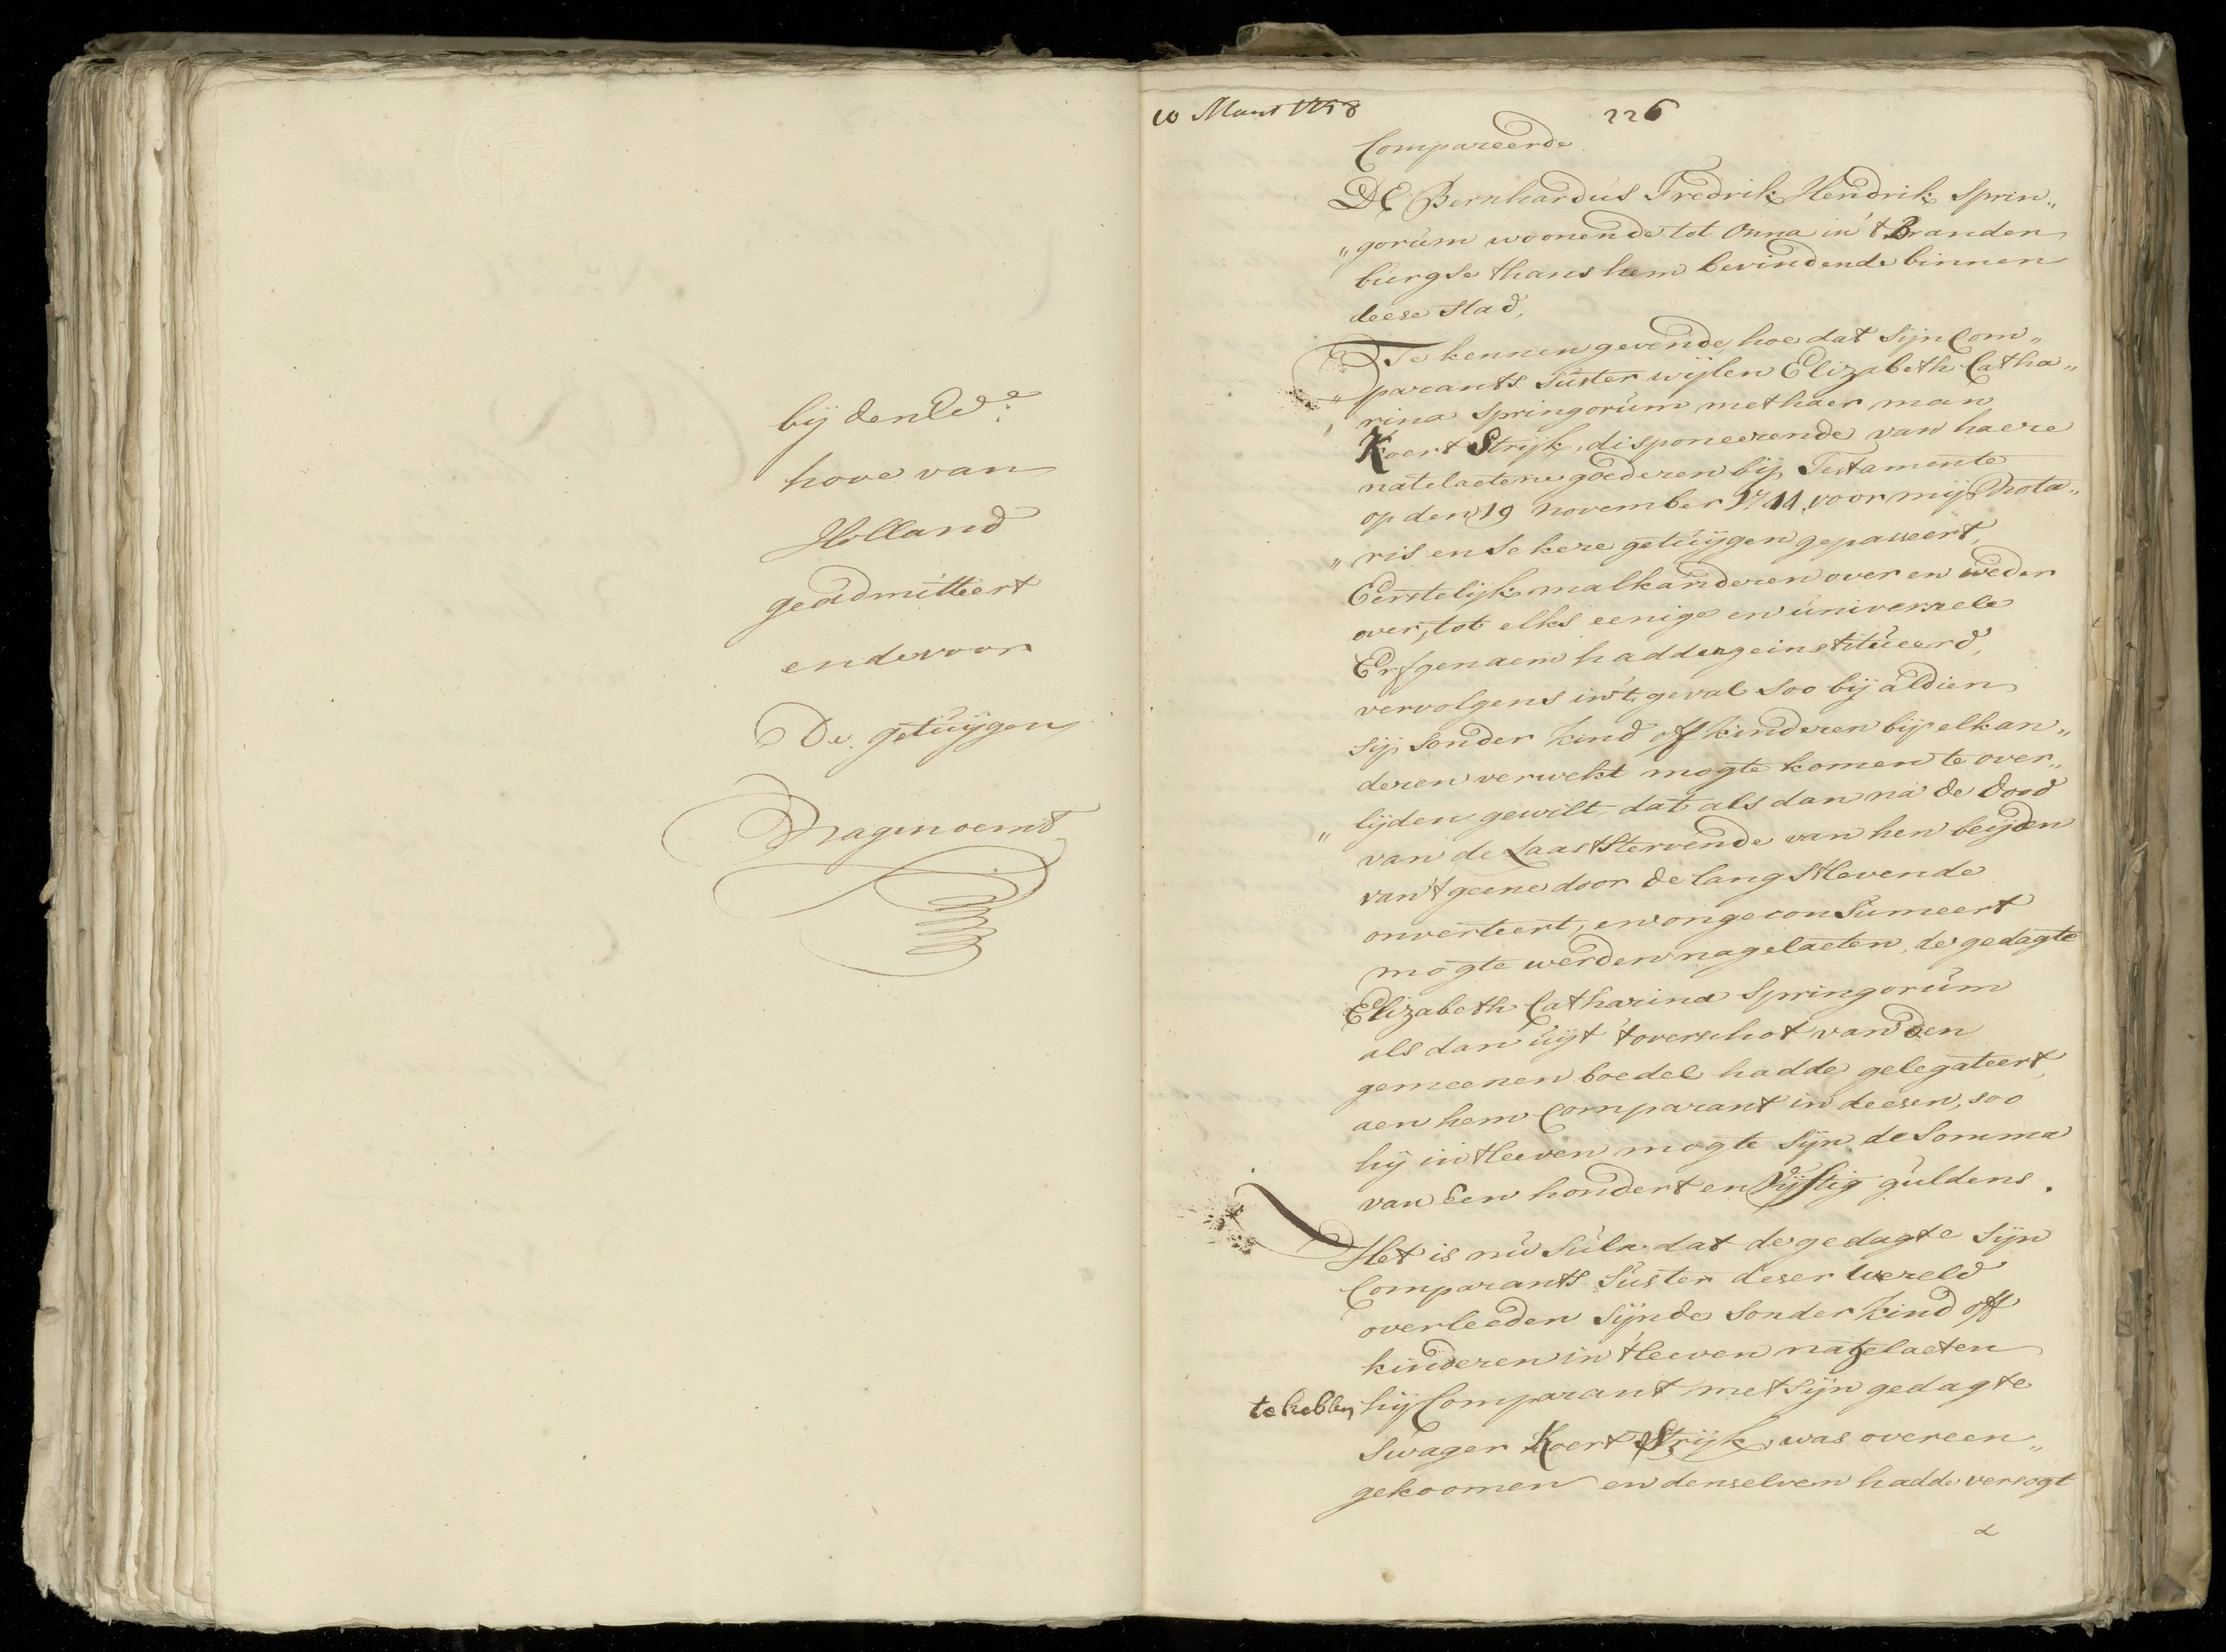 bij den Ed:e
hove van
Holland
geadmitteert
ende voor
De getuijgen
Nagenoemt
10 Maert 1758
226
Compareerde
DE Bernhardus Fredrik Hendrik Sprin„
„gorum woonende tot Onna in 't Branden
burgse thans hem bevindende binnen
deese stad,
Te kennen gevende hoe dat sijn Com„
„parants suster wijlen Elizabeth Catha„
„rina Springorum met haer man
Koert Strijk, disponeerende van haere
natelaetene goederen bij Testamente
op den 19 november 1744 voor mij Nota„
„ris en sekere getuijgen gepasseert,
Eerstelijk malkanderen over en weder
over, tot elks eenige en universeele
Erfgenaem hadden geinstitueerd,
vervolgens in 't geval soo bij aldien
sij sonder kind off kinderen bij elkan„
deren verwekt mogte komen te over„
„lijden gewilt, dat als dan na de dood
van de Laaststervende van hen beijden
van 't geene door de langstlevende
onverteert, en ongeconsumeert
mogte werden nagelaeten, de gedagte
Elizabeth Catharina Springorum
als dan uijt 't overschot van den
gemeenen boedel hadde gelegateert,
aen hem Comparant in deesen, soo
hij in 't leeven mogte sijn de Somma
van Een hondert en Vijftig guldens.
Het is nu sulx dat de gedagte sijn
Comparants suster deser Wereld
overleeden sijnde sonder kind off
kinderen in 't leeven nagelaeten
te hebben hij Comparant met sijn gedagte
Swager Koert Strijk, was overeen„
gekoomen en denselven hadde versogt